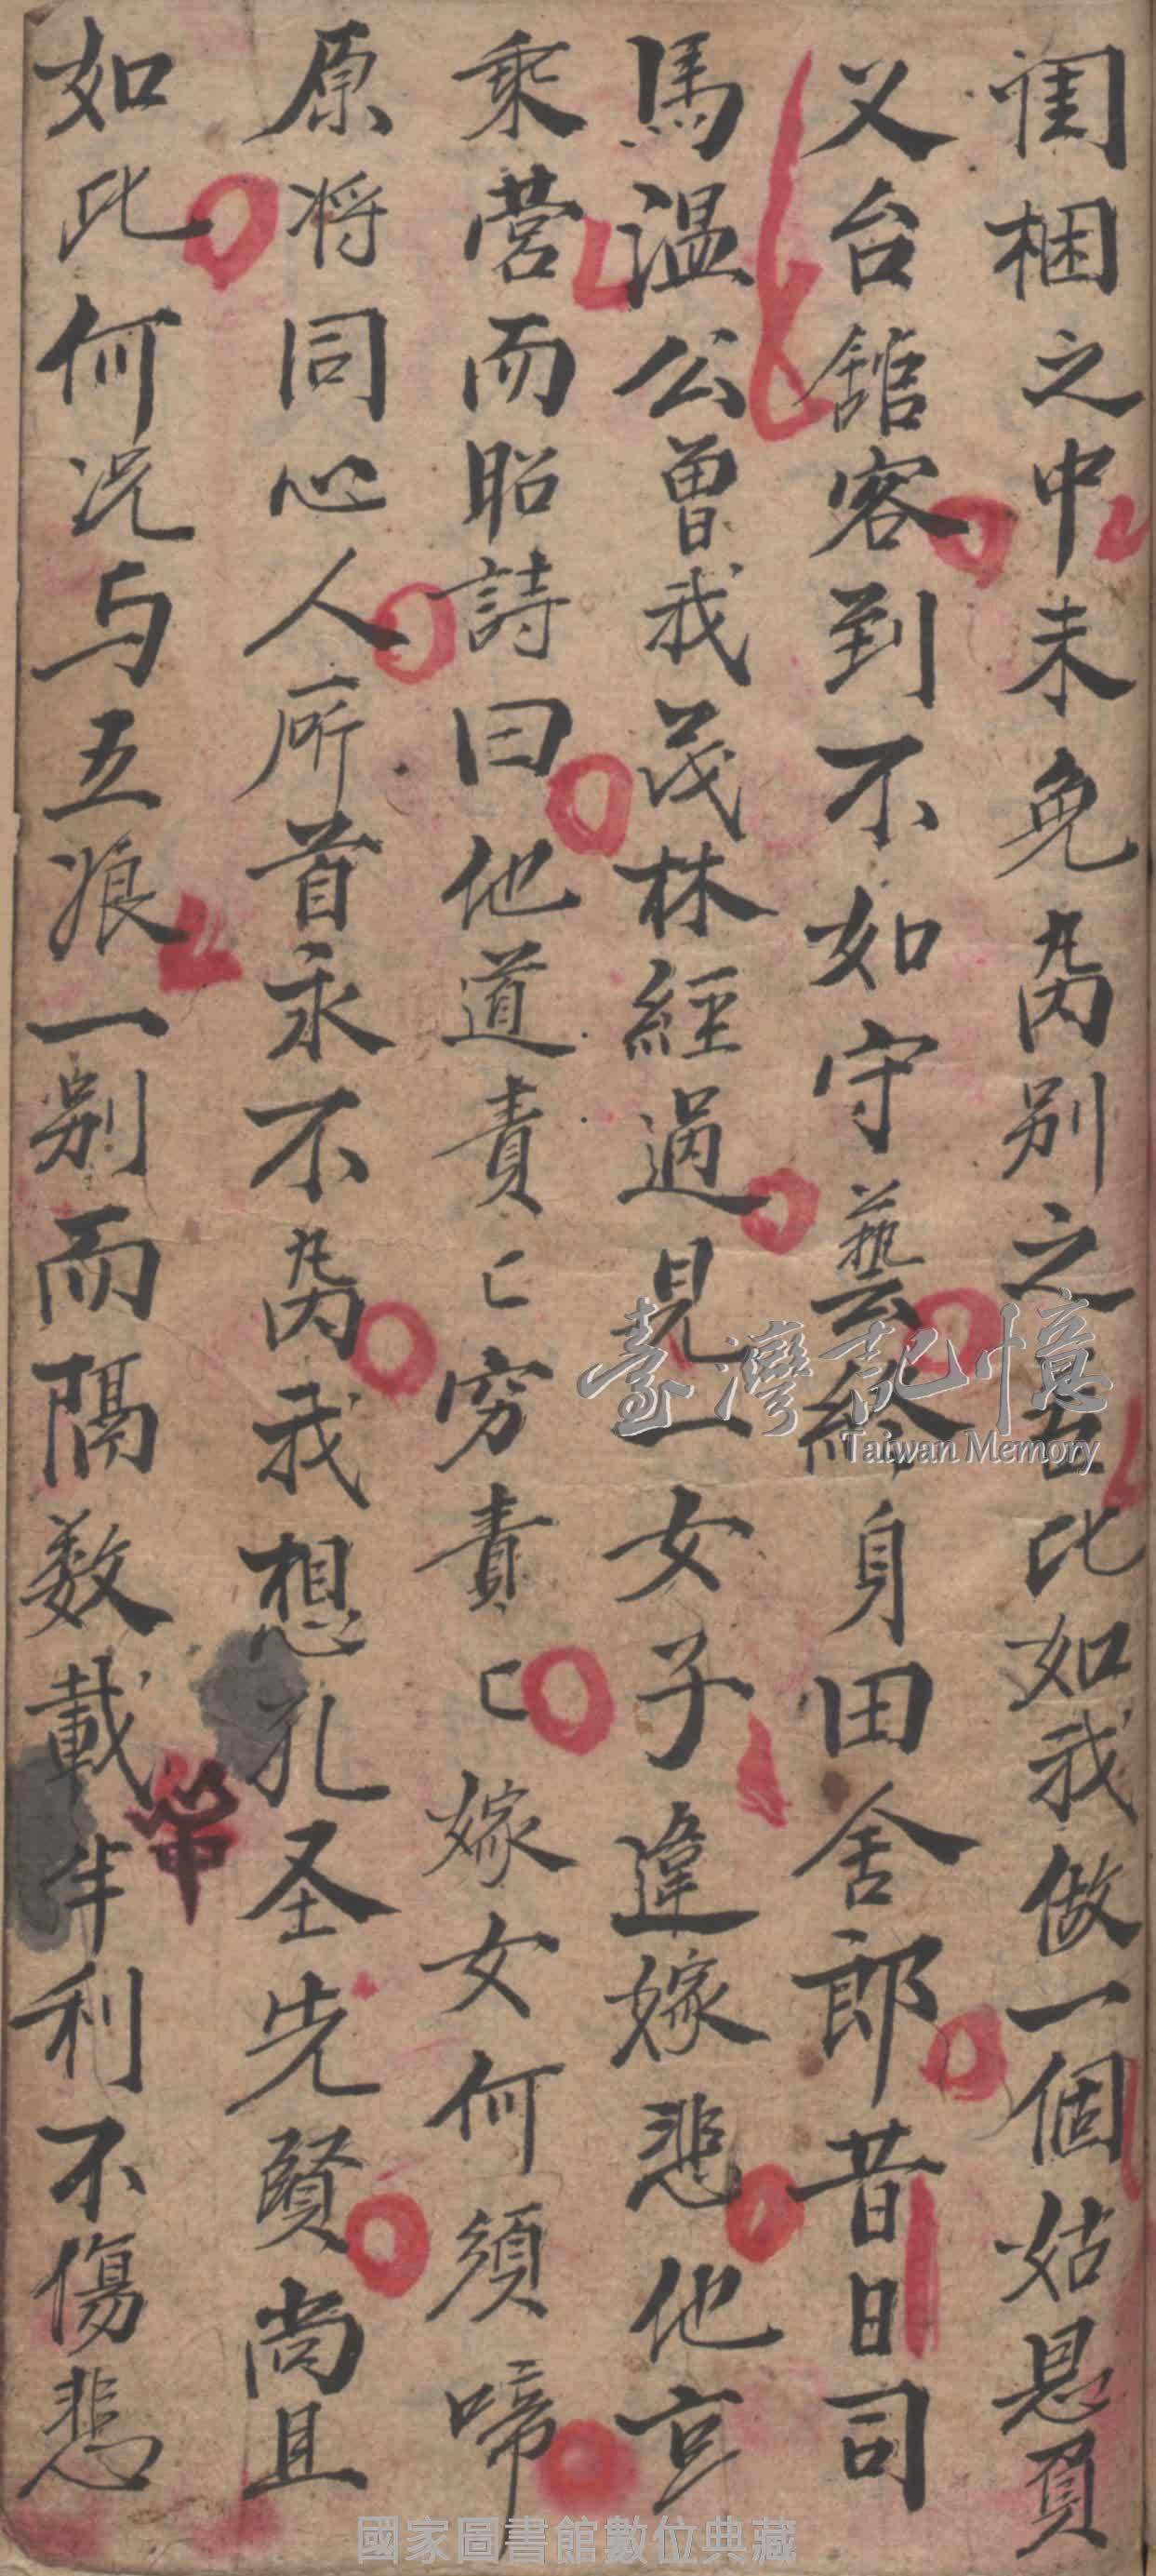 閨梱之中未免离别之苦比如我做一個姑息負
义台舘客到不如守藝終身田舍郎昔日司
馬温公曾我茂林經過見一女子違嫁悲他言
乘营而昭詩曰他道責亡穷責亡嫁女何須啼
原将同心人所首永不离我想孔圣先賢尚且
如此何况与五狼一别而隔数載年利不傷悲
臺灣記憶
Taiwan Memory
國家圖書館數位典藏